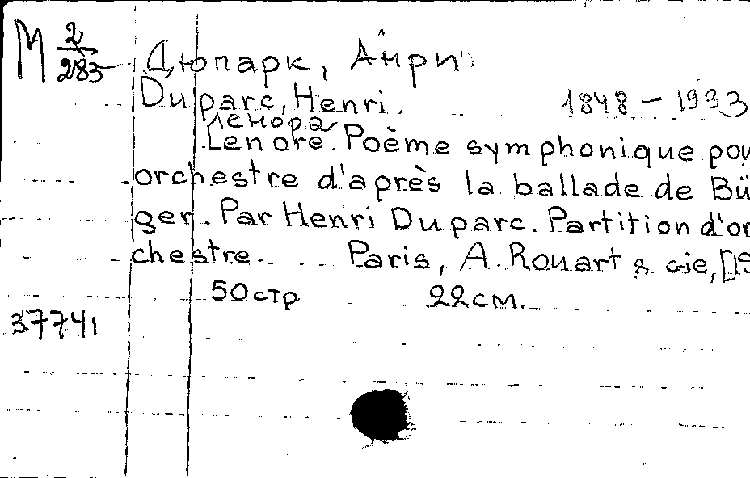 М 2/285 Дюпарк, Анри
Duparc, Henri. 1848 - 1933
Ленора
Lenore. Poème symphonique pou
orchestre d'après la ballade de Bü
ger. Par Henri Duparc. Partition d'or
chestre. Paris, A. Rouart & cie, [19
50 стр 22 см.
37741